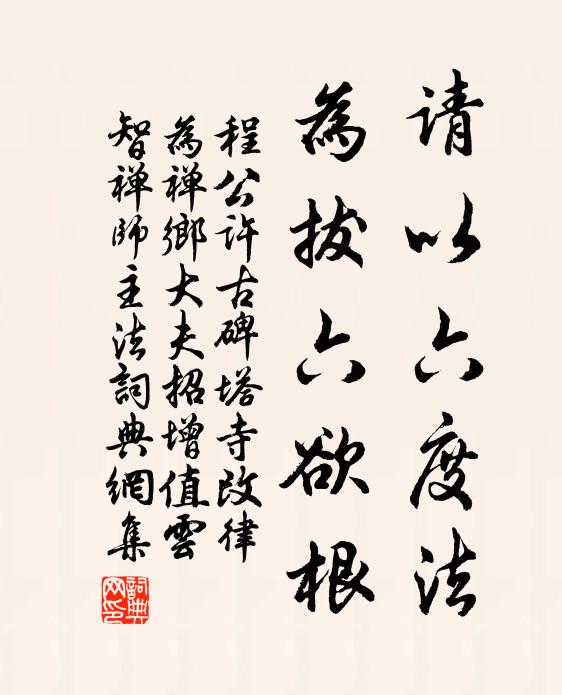 请以六度法
為拔六欲根
程公許古碑塔寺改律
為禅鄉大夫招增值雲
智禅師主法詞典網集
詞典网印